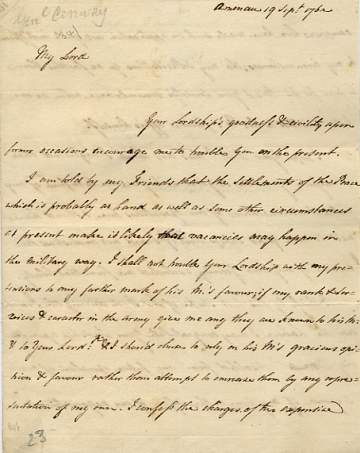 Genl Conway
Amenau 19 Sept. 1762
My Lord
Your Lordship's goodness & civility upon
former occasions encourage me to trouble You on the present.
I am told by my Friends that the settlements of the Peace
which is probably at hand as well as some other circumstances
at present make it likely that vacancies may happen in
the Military way. I shall not trouble Your Lordship with my pre-
tensions to any further mark of his M's favour; if my rank & Ser-
vices & caracter in the army give me any they are known to his M:
& to Your Lordp. & I should chuse to rely on his M's gracious opi-
nion & favour rather than attempt to enhance them by any repre-
sentation of my own. I confess the charges of two expensive
23